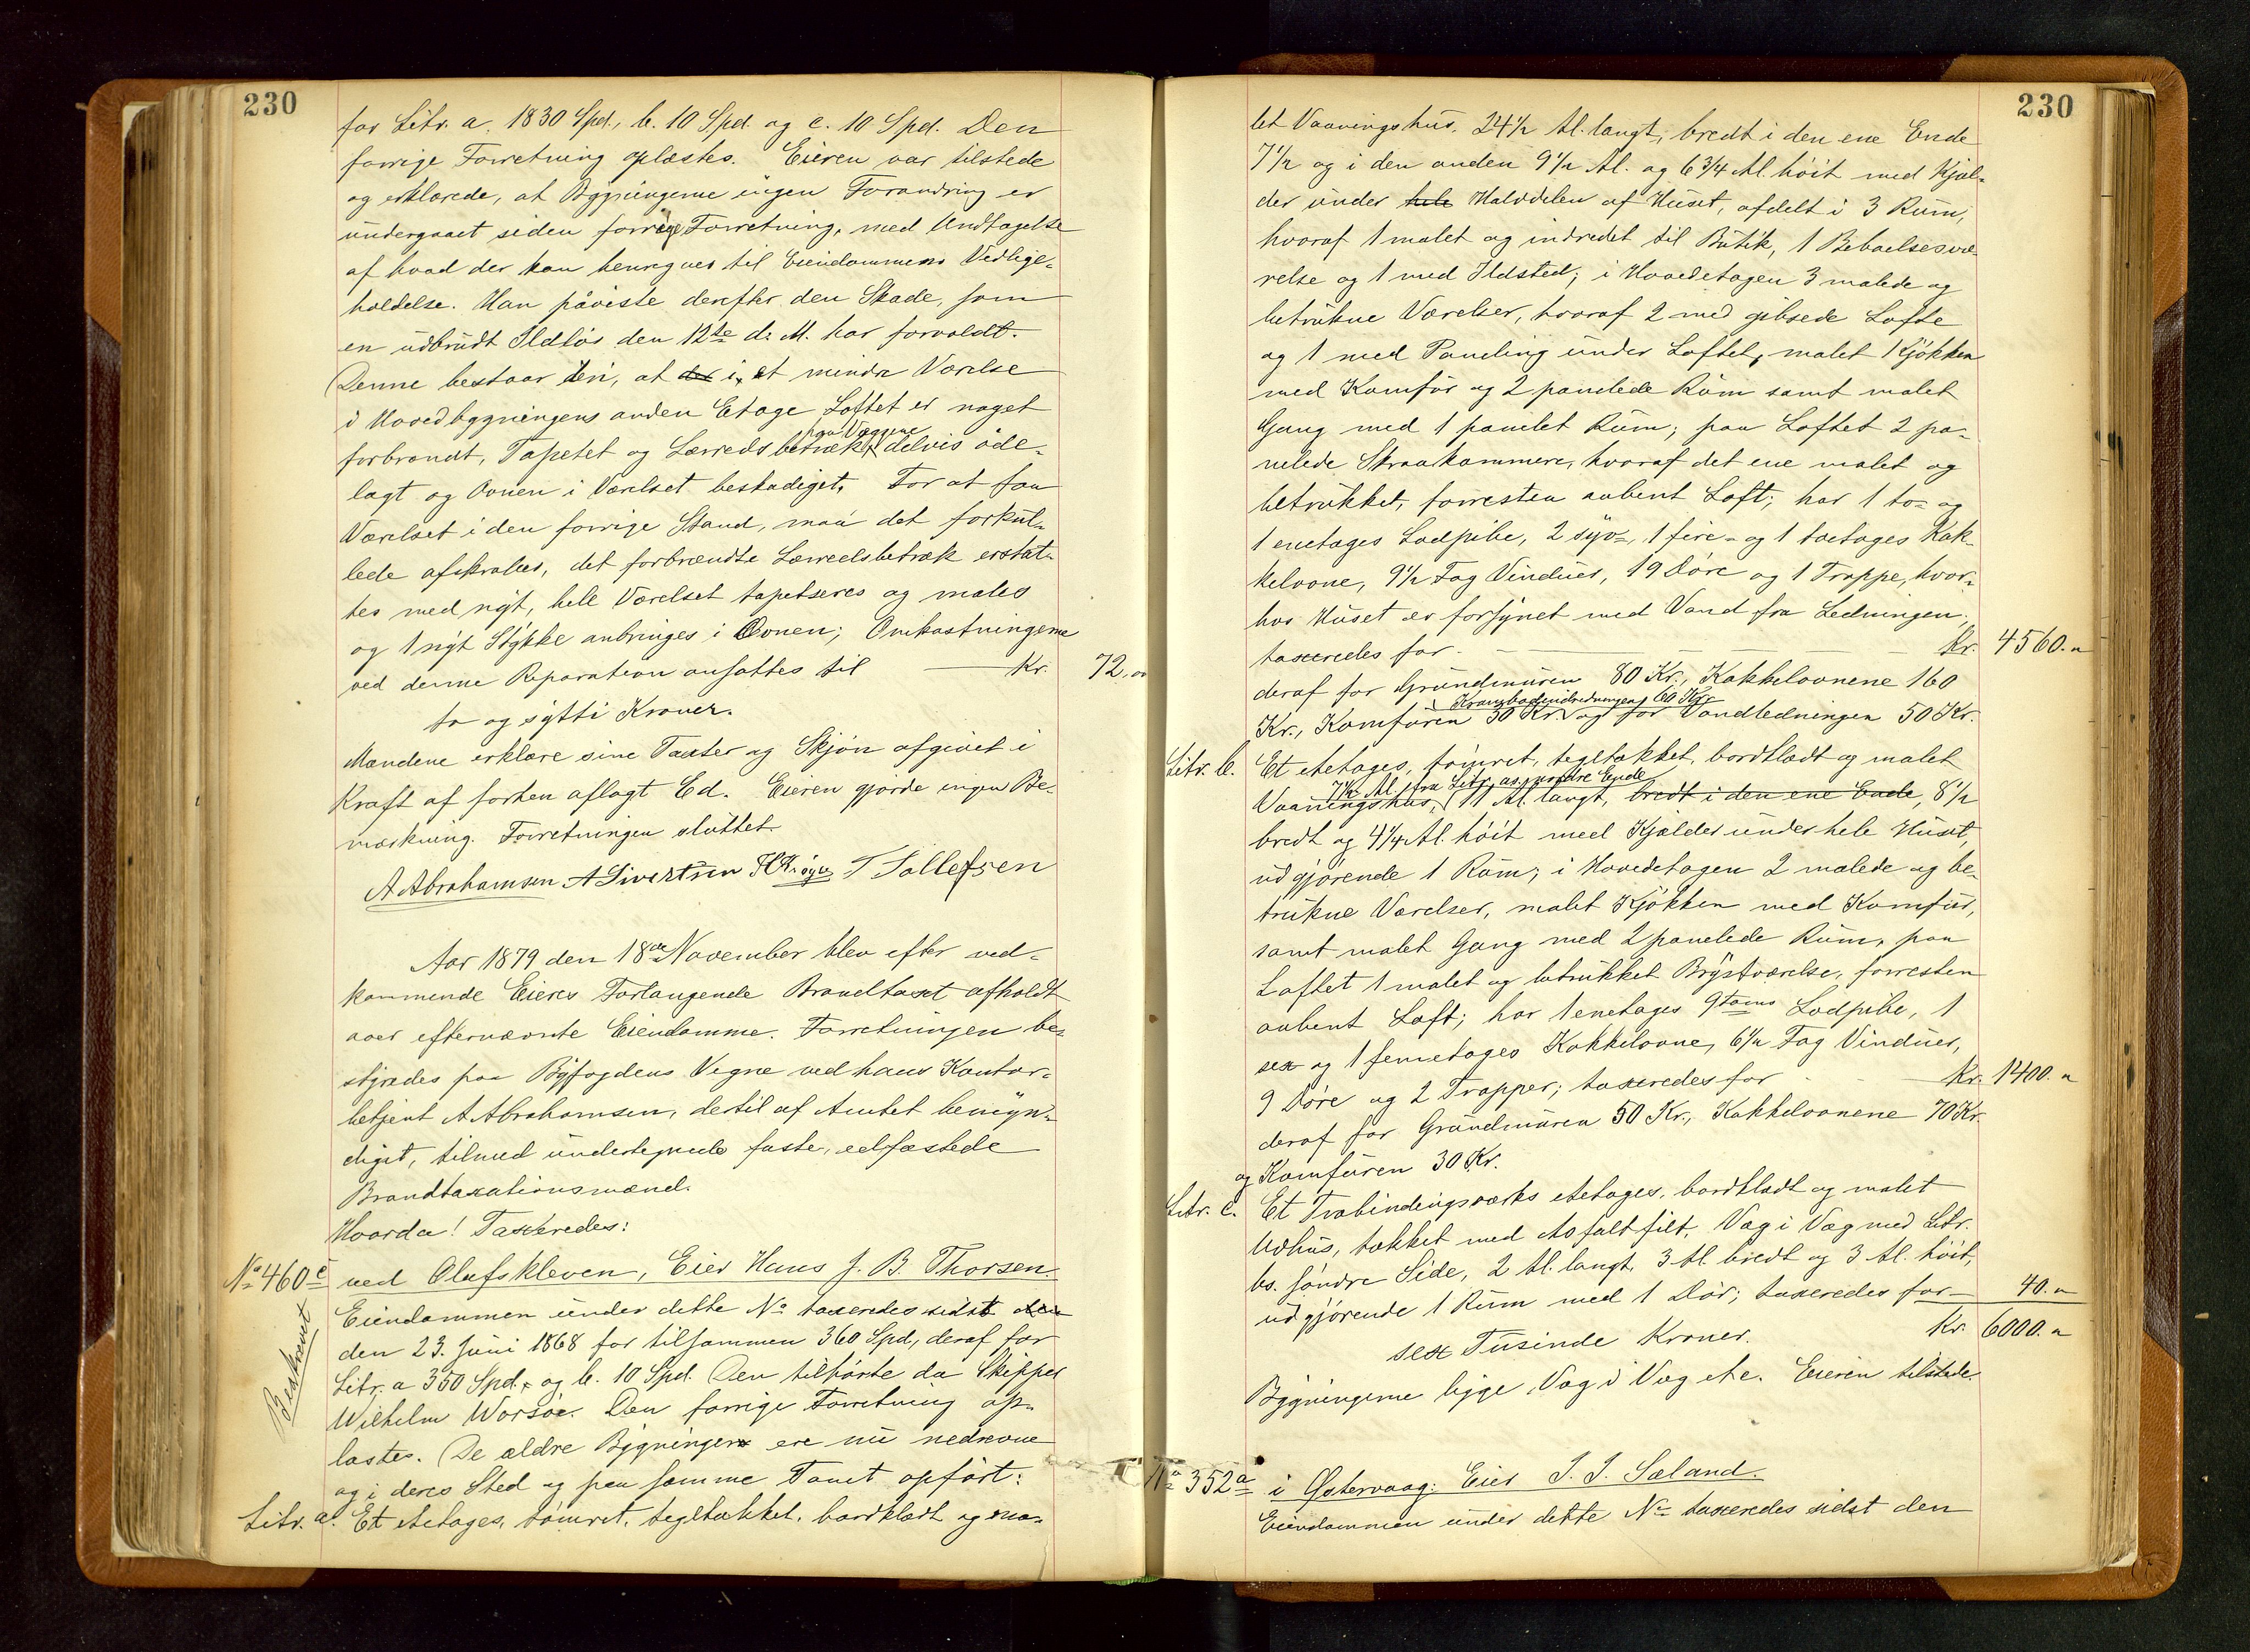 230
for Litr. a. 1830 Spd., b. 10 Spd. og c. 10 Spd. Den
forrige Forretning oplæstes. Eieren var tilstede
og erklærede, at Bygningerne ingen Forandring er
undergaaet siden forrige Forretning, med Undtagelse
af hvad der kan henregnes til Eiendommens Vedlige-
holdelse. Han påviste derefter den Skade, som
en udbrudt Ildløs den 12te d. M. har forvoldt.
Denne bestaar deri, at der i et mindre Værelse
i Hovedbygningens anden Etage Loftet er noget
paa Væggene
forbrændt, Tapetet og Lærredsbetræk delvis øde-
lagt og Ovnen i Værelset beskadiget. For at faa
Værelset i den forrige Stand, maa det forkul-
lede afskrabes, det forbrændte Lærredsbetræk erstat-
tes med nyt, hele Værelset tapetseres og males
og 1 nyt Stykke anbringes i Ovnen; Omkostningerne
ved denne Reparation ansattes til Kr. 72.
to og sytti Kroner.
Mændene erklære sine Taxter og Skjøn afgivet i
Kraft af forhen aflagt Ed. Eieren gjorde ingen Be-
mærkning. Forretningen sluttet.
A Abrahamsen A Sivertsen T Tollefsen
Aar 1879 den 18de November blev efter ved-
kommende Eieres Forlangende Brandtaxt afholdt
over efternævnte Eiendomme. Forretningen be-
styredes paa Byfogdens Vegne ved hans Kontor-
betjent A Abrahamsen, dertil af Amtet bemyn-
diget, tilmed undertegnede faste, edfæstede
Brandtaxationsmænd.
Hvorda! Taxeredes:
No 460c ved Olafskleven, Eier Hans J. B. Thorsen.
Beskrevet
Eiendommen under dette No taxeredes sidst den
den 23. Juni 1868 for tilsammen 360 Spd, deraf for
Litr. a 350 Spd. og b. 10 Spd. Den tilhørte da Skipper
Wilhelm Worsøe. Den forrige Forretning op-
læstes. De ældre Bygninger ere nu nedrevne
og i deres Sted og paa samme Tomt opført:
Litr. a. Et etetages, tømret, tegltækket, bordklædt og ma-
230
let Vaaningshus, 24 1/2 Al. langt, bredt i den ene Ende
7 1/2 og i den anden 9 1/2 Al. og 6 3/4 Al. høit med Kjæl-
der under hele Halvdelen af Huset, afdelt i 3 Rum,
hvoraf 1 malet og indredet til Butik, 1 Beboelsesvæ-
relse og 1 med Ildsted; i Hovedetagen 3 malede og
betrukne Værelser, hvoraf 2 med gibsede Lofte
og 1 med Paneling under Loftet, malet Kjøkken
med Komfür og 2 panelede Rum samt malet
Gang med 1 panelet Rum; paa Loftet 2 pa-
nelede Skraakammere, hvoraf det ene malet og
betrukket, forresten aabent Loft; har 1 to- og
1 enetages Lodpibe, 2 syv-, 1 fire- og 1 toetages Kak-
kelovne, 9 1/2 Fag Vinduer, 19 Døre og 1 Trappe, hvor-
hos Huset er forsynet med Vand fra Ledningen,
taxeredes for Kr. 4560.
deraf for Grundmuren 80 Kr., Kakkelovnene 160
Krambodindredningen 60 Kr.
Kr., Komfuren 30 Kr. og for Vandledningen 50 Kr.
Litr. b. Et etetages, tømret, tegltækket, bordklædt og malet
7 1/2 Al. fra Litr. as nordre Ende
Vaaningshus, 11 Al. langt, bredt i den ene Ende, 8 1/2
bredt og 4 1/4 Al. høit med Kjælder under hele Huset,
udgjørende 1 Rum; i Hovedetagen 2 malede og be-
trukne Værelser, malet Kjøkken med Komfür,
samt malet Gang med 2 panelede Rum, paa
Loftet 1 malet og betrukket Brystværelse, forresten
aabent Loft; har 1 enetages 9toms Lodpibe, 1
sex og 1 femetages Kakkelovne, 6 1/2 Fag Vinduer,
9 Døre og 2 Trapper; taxeredes for Kr. 1400.
deraf for Grundmuren 50 Kr., Kakkelovnene 70 Kr.
og Komfuren 30 Kr.
Litr. c. Et Træbindingsværks etetages, bordklædt og malet
Udhus, tækket med Asfaltfilt, Væg i Væg med Litr.
bs. søndre Side, 2 Al. langt, 3 Al. bredt og 3 Al. høit,
udgjørende 1 Rum med 1 Dør; taxeredes for 40.
sex Tusinde Kroner. Kr. 6000.
Bygningerne ligge Væg i Væg etc. Eieren tilstede.
No 352a i Østervaag: Eier J. J. Sæland.
Eiendommen under dette No taxeredes sidst den